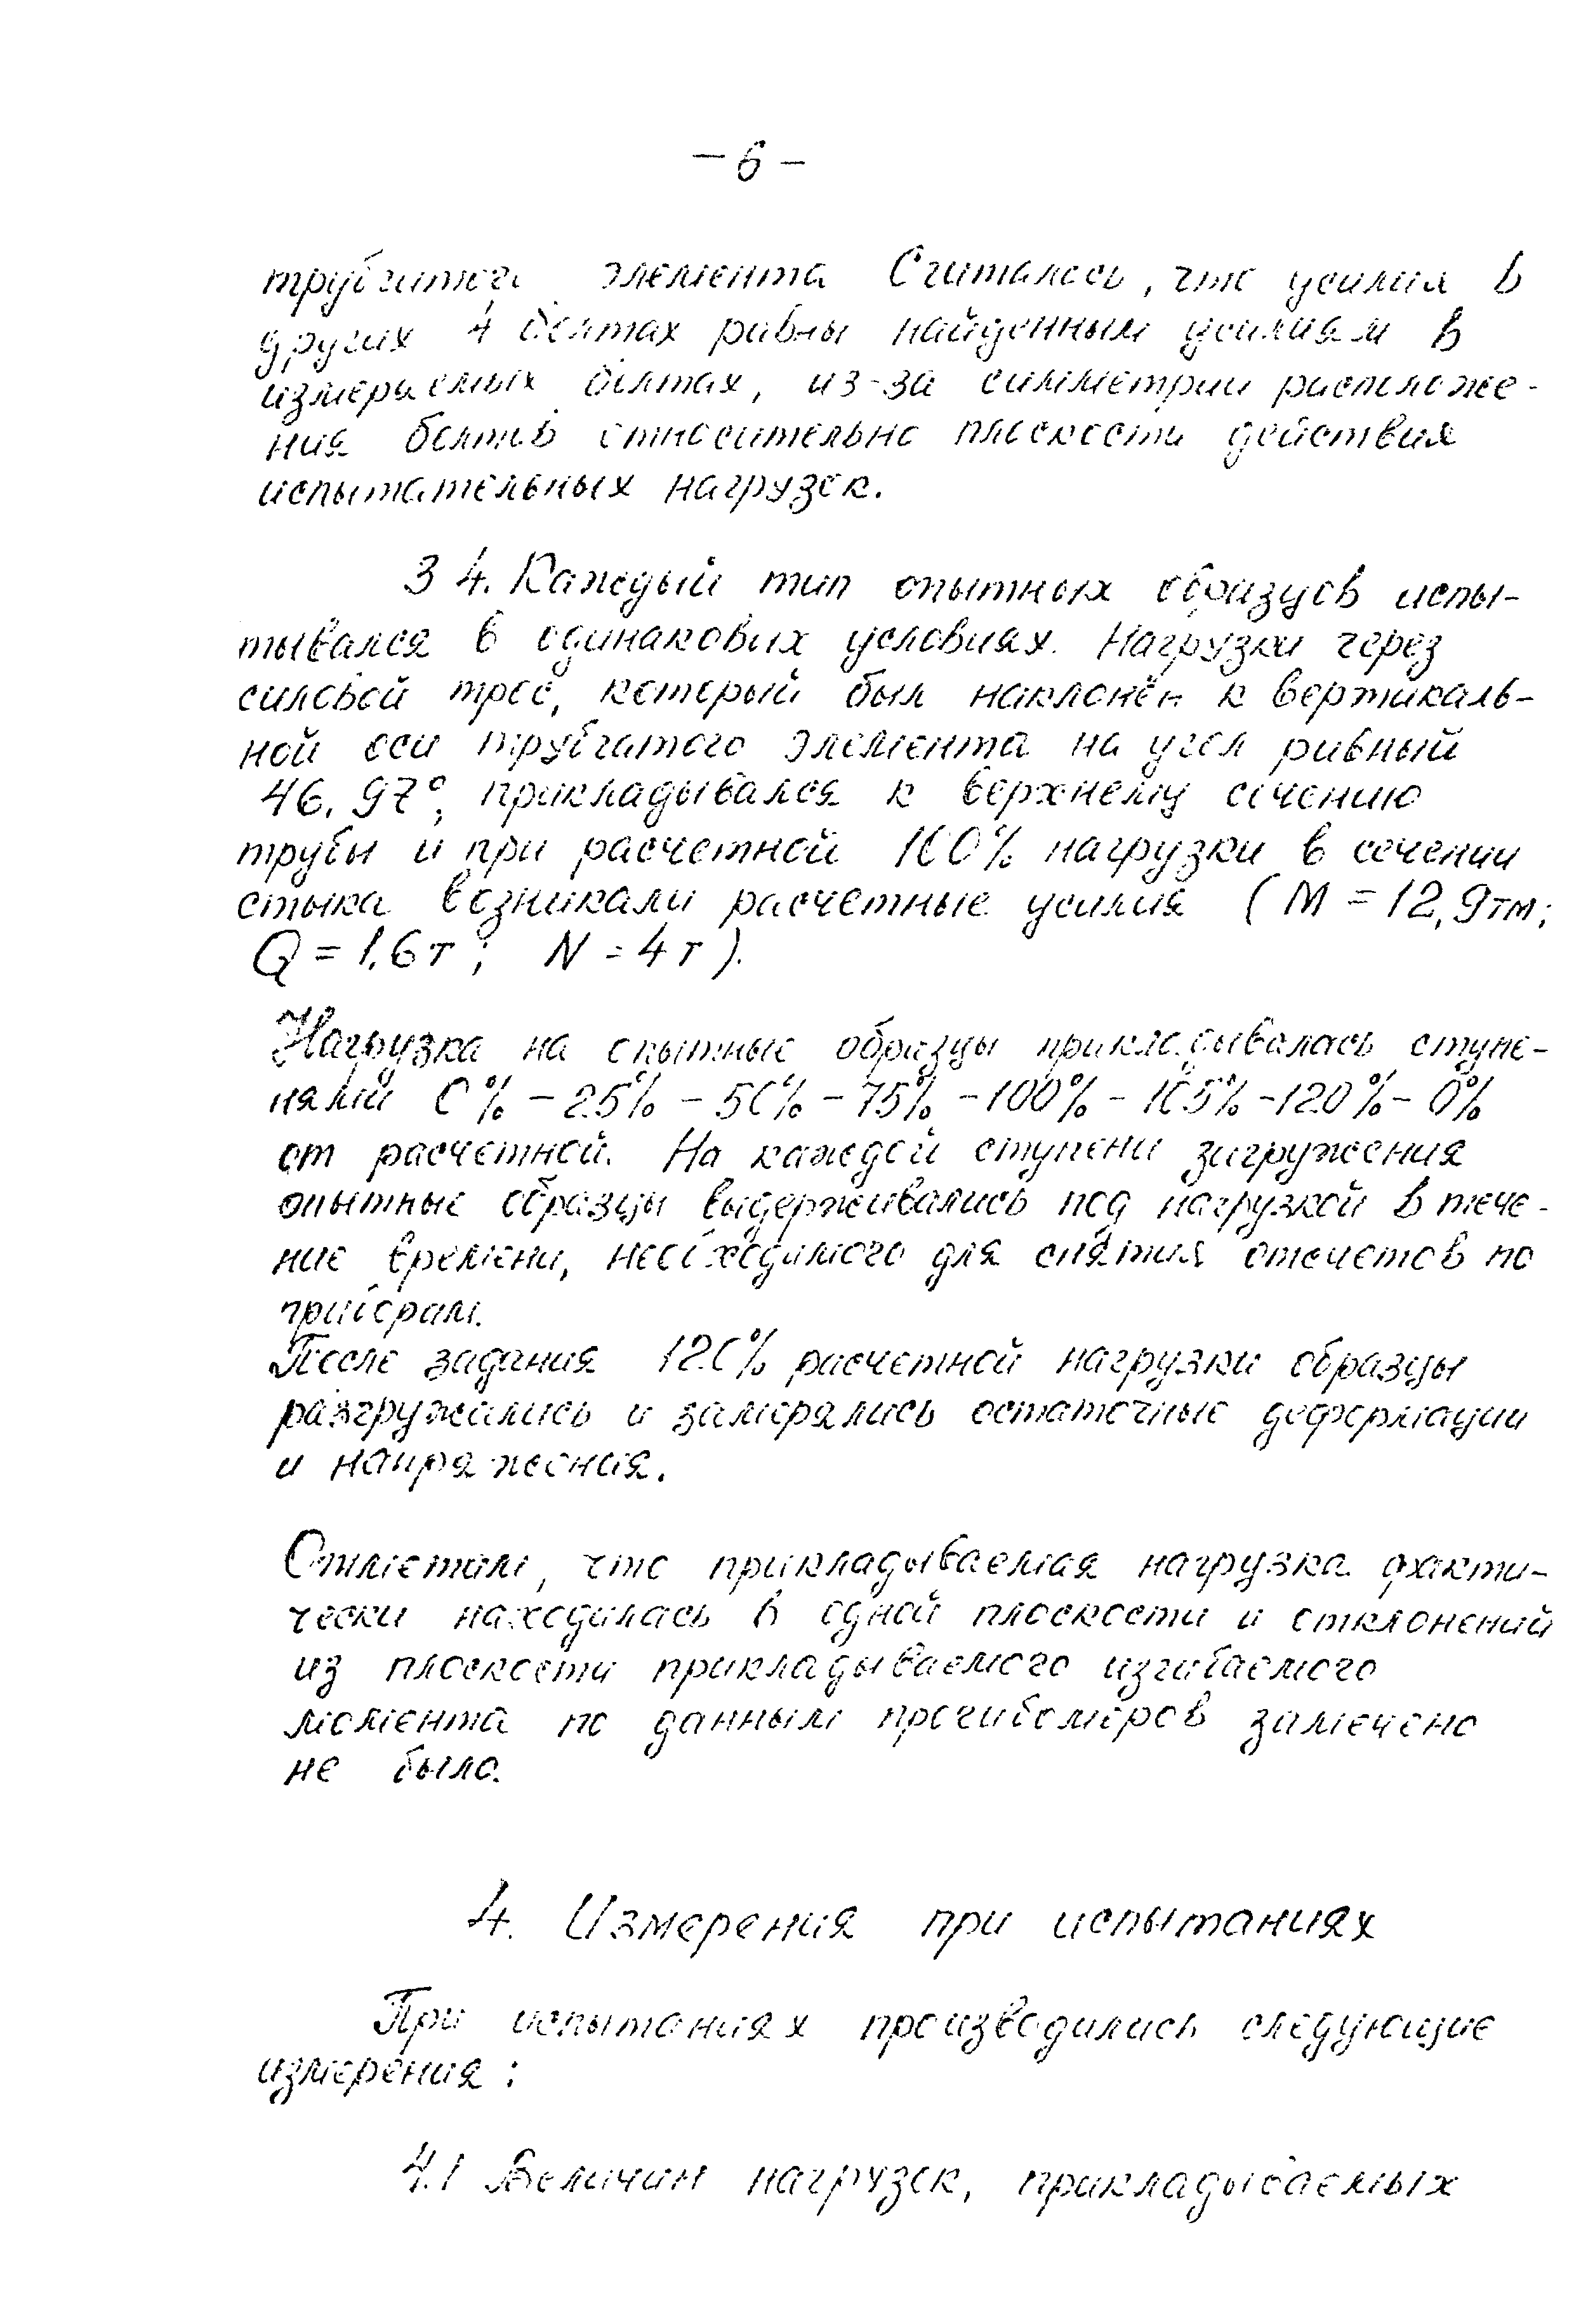 – 6 –
трубчатого элемента Считалось, что усилия в
других 4 болтах равны найденным усилиям в
измеряемых болтах, из-за симметрии расположе-
ния болтов относительно плоскости действия
испытательных нагрузок.
3 4. Каждый тип опытных образцов испы-
тывался в одинаковых условиях. Нагрузки через
силовой трос, который был наклонён к вертикаль-
ной оси трубчатого элемента на угол равный
46.97°, прикладывался к верхнему сечению
трубы и при расчетной 100% нагрузки в сечении
стыка возникали расчетные усилия ( М = 12,9тм;
Q = 1.6т ; N = 4т ).
Нагрузка на опытные образцы прикладывалась ступе-
нями 0% – 25% – 50% – 75% – 100% – 105% – 120% – 0%
от расчетной. На каждой ступени загружения
опытные образцы выдерживались под нагрузкой в тече-
ние времени, необходимого для снятия отсчетов по
приборам.
После задания 120% расчетной нагрузки образцы
разгружались и замерялись остаточные деформации
и напряжения.
Отметим, что прикладываемая нагрузка факти-
чески находилась в одной плоскости и отклонений
из плоскости прикладываемого изгибаемого
момента по данным прогибомеров замечено
не было.
4. Измерения при испытаниях
При испытаниях производились следующие
измерения :
4.1 Величин нагрузок, прикладываемых